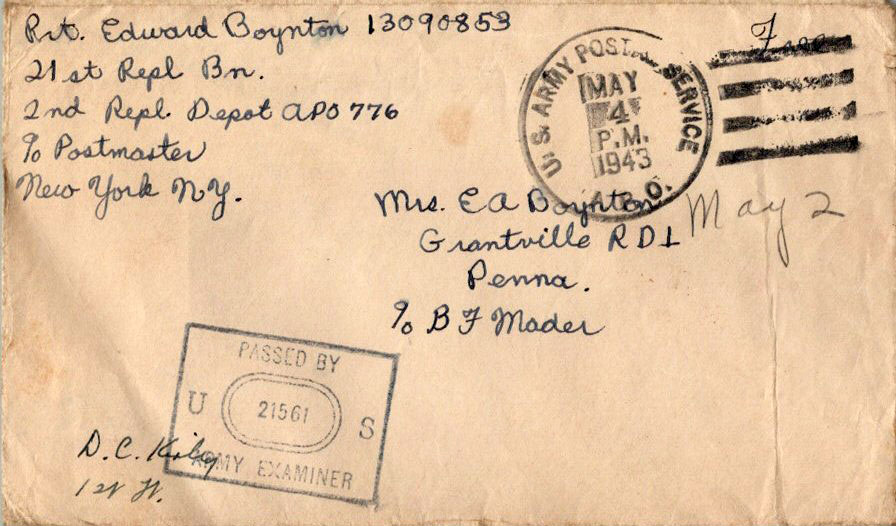 Pvt. Edward Boynton 13090853
21st Repl Bn.
2nd Repl. Depot APO 776
% Postmaster
New York N.Y.
Free
U.S. ARMY POSTAL SERVICE
MAY
4
P.M.
1943
A.P.O.
Mrs. E A Boynton
May 2
Grantville RD1
Penna.
% B F Mader
PASSED BY
U 21561 S
ARMY EXAMINER
D.C. Kirby
1st Lt.